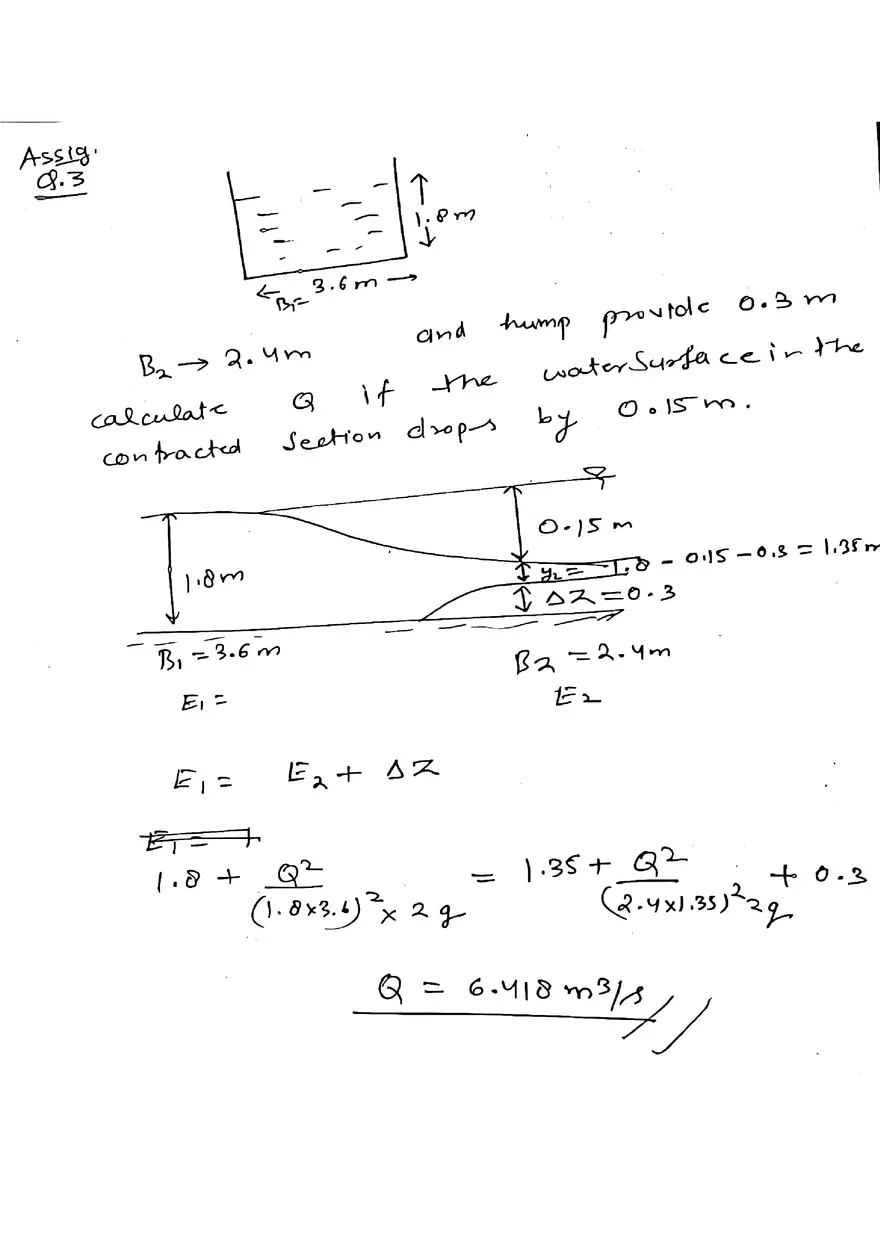 Assig.
Q.3
1.8 m
B₁= 3.6 m
B₂ → 2.4m and hump provide 0.3 m
calculate Q if the water surface in the
contracted section drops by 0.15 m.
0.15 m
1.8 m
y₂ = 1.8 - 0.15 - 0.3 = 1.35 m
ΔZ = 0.3
B₁ = 3.6 m B2 = 2.4m
E₁ = E₂
E₁ = E₂ + ΔZ
1.8 + Q²/((1.8x3.6)² x 2g) = 1.35 + Q²/((2.4x1.35)² 2g) + 0.3
Q = 6.418 m3/s